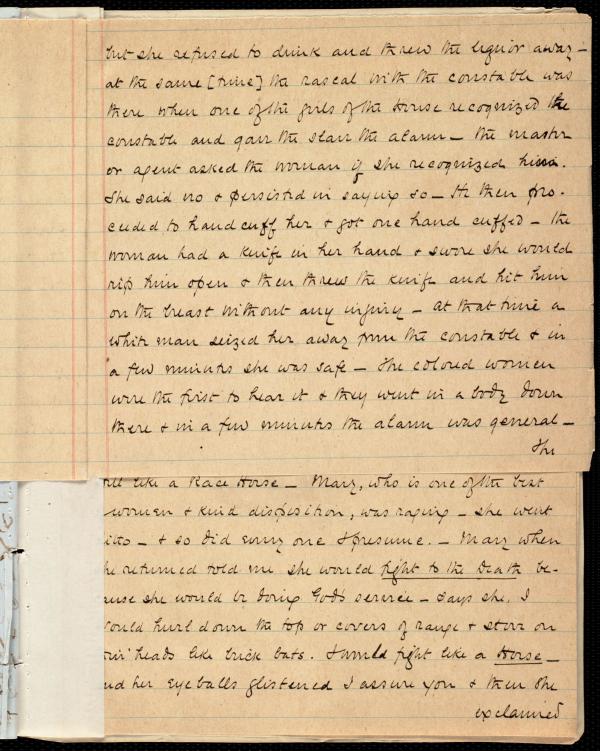 but she refused to drink and threw the liquor away –
at the same [time] the rascal with the constable was
there when one of the girls of the House recognized the
constable and gave the slave the alarm – the master
or agent asked the woman if she recognized him.
She said no & persisted in saying so – He then pro-
ceeded to hand cuff her & got one hand cuffed – the
woman had a knife in her hand & swore she would
rip him open & then threw the knife and hit him
on the breast without any injury – at that time a
white man seized her away from the constable & in
a few minutes she was safe – The colored women
were the first to hear it & they went in a body down
there & in a few minutes the alarm was general –
The
like a Race Horse – Mary, who is one of the best
women & kind disposition, was raging – she went
& so did every one I presume. – Mary when
he returned told me she would fight to the Death be-
cause she would be doing God's service – says she, I
would hurl down the top or covers of range & stove on
their heads like brick bats. I would fight like a Horse –
and her eyeballs glistened I assure you & then she
exclaimed